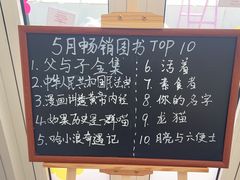 5月畅销图书TOP 10
1.父与子全集
2.中华人民共和国民法典
3.漫画讲透黄帝内经
4.如果历史是一群喵
5.哈小浪奇遇记
6.活着
7.素食者
8.你的名字
9.龙猫
10.月亮与六便士